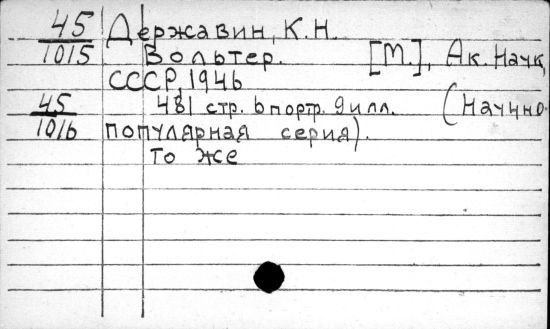 45 Державин, К.Н.
1015 Вольтер. [М.], Ак. Наук
СССР, 1946
45 481 стр. 6 портр. 9 илл. (Научно-
1016 популярная серия).
То же